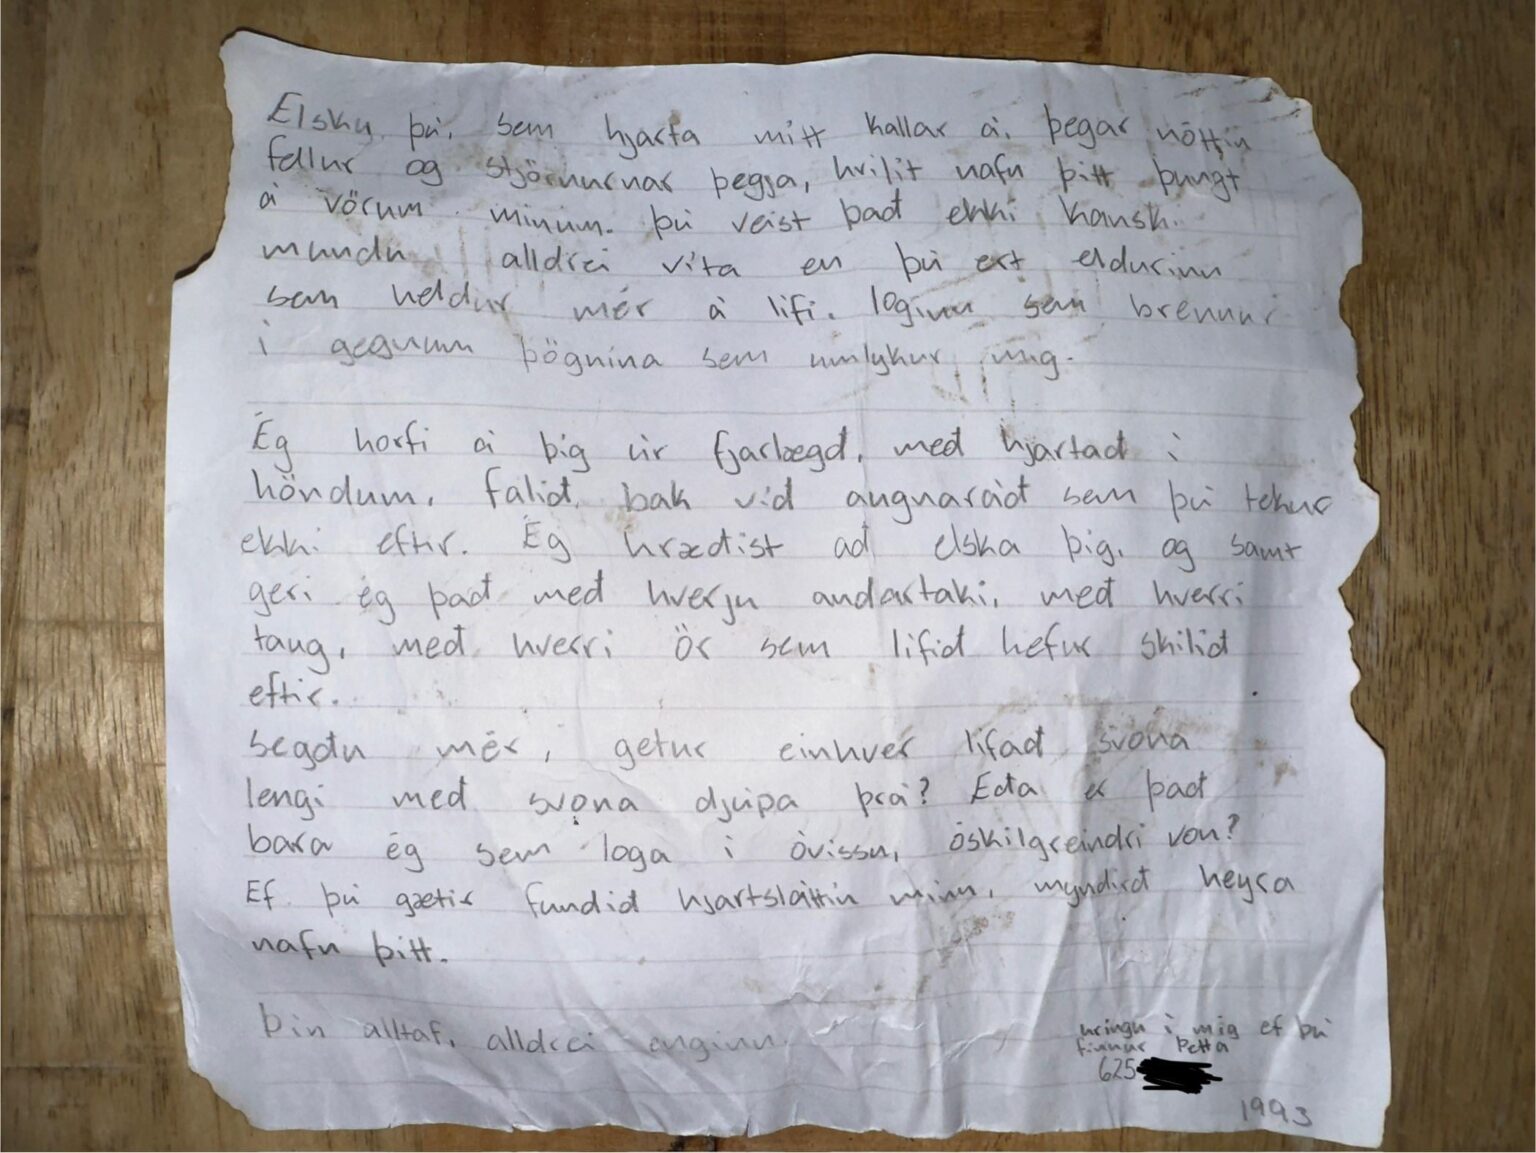 Elsku þú, sem hjarta mitt kallar á, þegar nóttin
fellur og stjörnurnar þegja, hvílit nafn þitt þungt
á vörum mínum. þú veist það ekki kansk.
mundu alldrei vita en þú ert eldurinn
sem heldur mér á lífi. loginn sem brennur
í gegnum þögnina sem umlykur mig.
Ég horfi á þig úr fjarlægð, með hjartað í
höndum, falið, bak við augnaráð sem þú tekur
ekki eftir. Ég hræðist að elska þig, og samt
geri ég það með hverju andartaki, með hverri
taug, með hverri ör sem lífið hefur skilið
eftir.
segðu mér, getur einhver lifað svona
lengi með svona djúpa þrá? Eða er það
bara ég sem loga í óvissu, óskilgreindri von?
Ef þú gætir fundið hjartsláttin minn, myndirð heyra
nafn þitt.
Þin alltaf, alldrei enginn.
hringu í mig ef þú
finnur þetta
625
1993